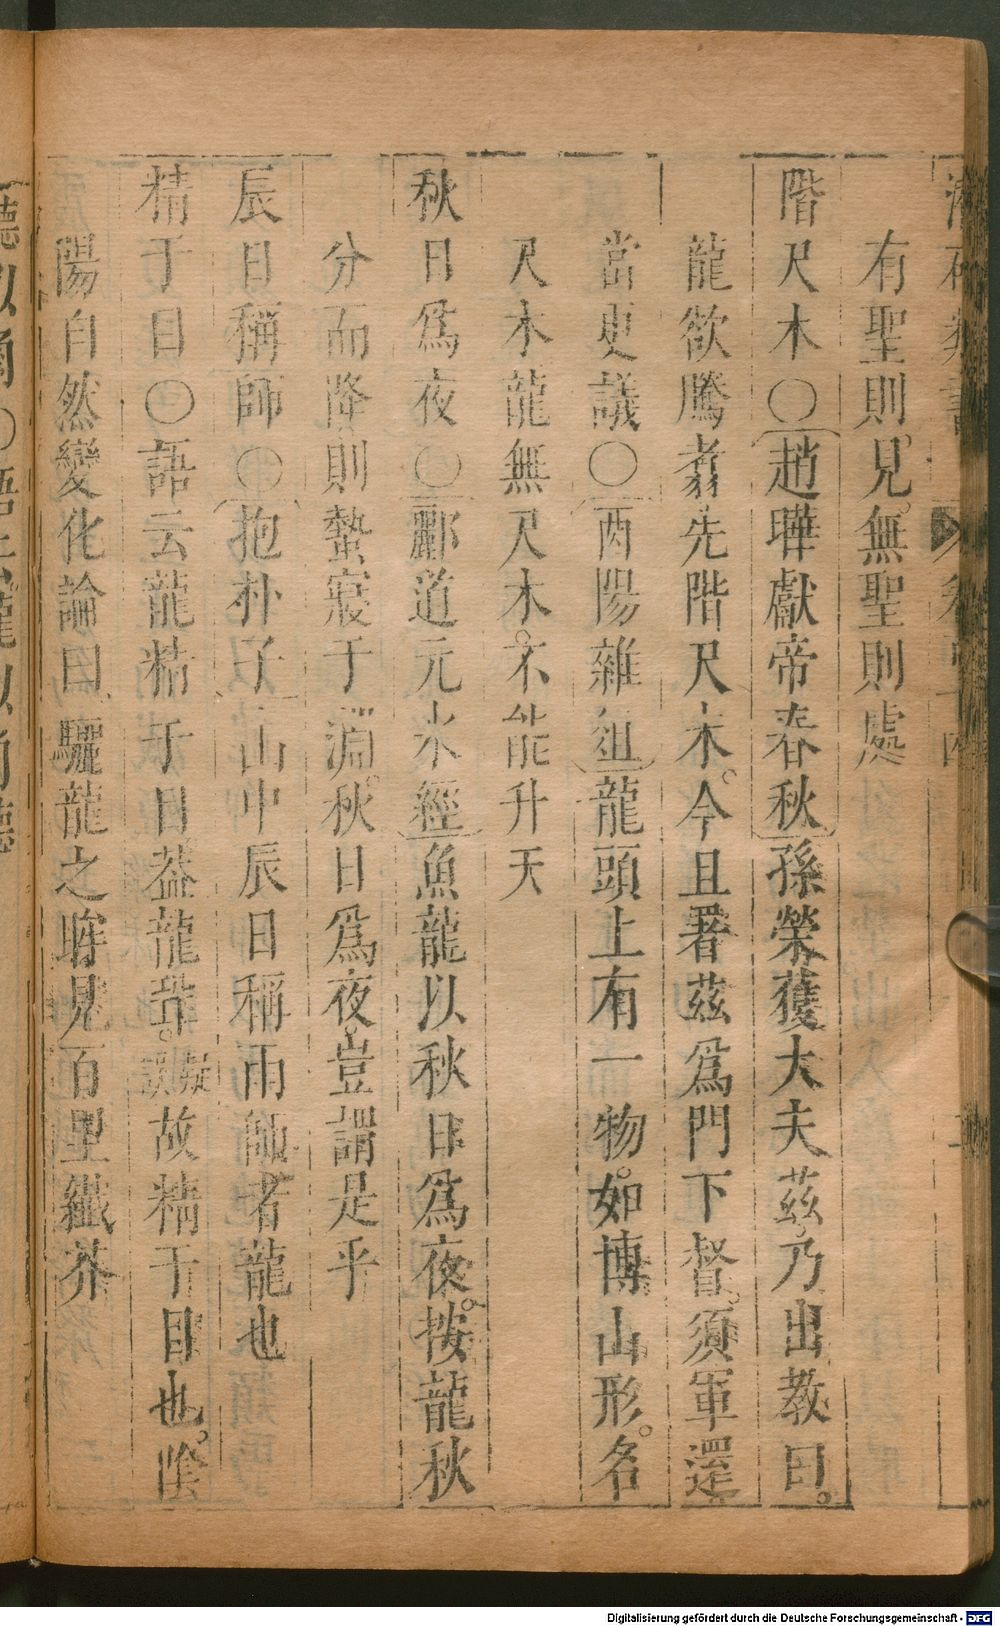 有聖則見。無聖則處
階尺木〇趙曄獻帝春秋孫榮獲大夫茲乃出教曰。
龍欲騰翥先階尺木。今且署茲爲門下督。須軍還
當更議〇酉陽雜俎龍頭上有一物。如博山形。名
尺木龍無尺木。不能升天
秋日爲夜〇酈道元水經魚龍以秋日爲夜。按龍秋
分而降則蟄寢于淵。秋日爲夜。豈謂是乎
辰日稱師〇抱朴子山中辰日稱雨師者龍也
精于目〇語云龍精于目葢龍聾。疑誤故精于目也。陰
陽自然變化論曰驪龍之眸見百里纖芥
Digitalisierung gefördert durch die Deutsche Forschungsgemeinschaft - DFG